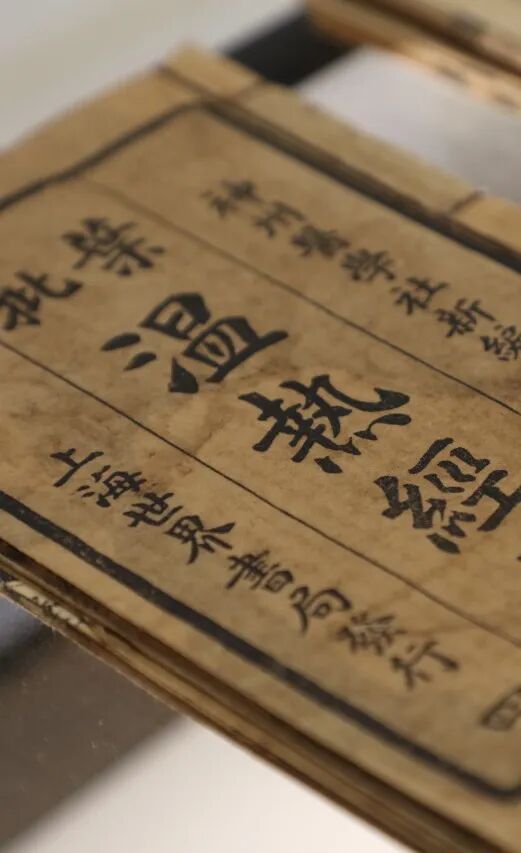 神州醫學社新編
葉批
温熱經
上海世界書局發行